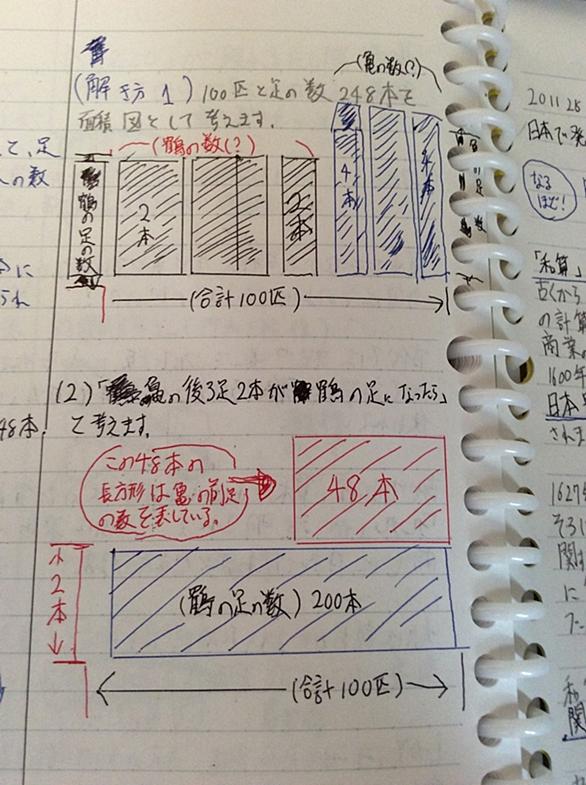 (解き方 1) 100匹と足の数 248本を
面積図として考えます。
(亀の数(?))
(鶴の数(?))
鶴の足の数
2本
2本
4本
4本
(合計100匹)
(2)「亀の後ろ足2本が鶴の足になったら」
て考えます。
この48本の
長方形は亀の前足
の数を表している。
48本
2本
(鶴の足の数) 200本
(合計100匹)
て、足
の数
に
48本.
2011 28
日本で発
なる
ほど!
「和算」
古くから
の計算
商業の
1600年
日本
されま
1627
関
に
和
関